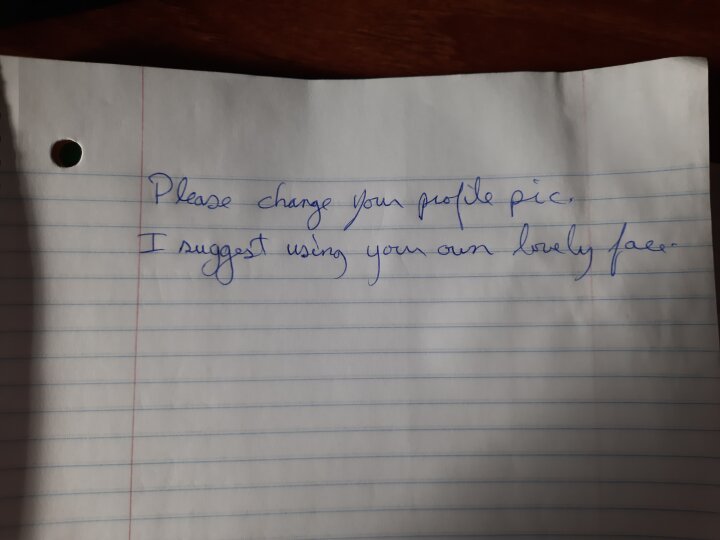 Please change your profile pic.
I suggest using your own lovely face.